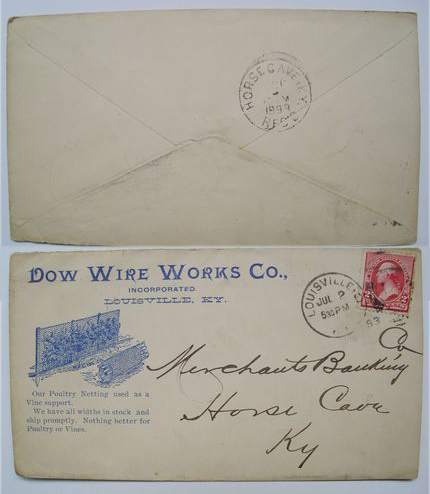 HORSE CAVE KY.
REC'D
DOW WIRE WORKS CO.,
INCORPORATED.
LOUISVILLE, KY.
LOUISVILLE
JUL 2
530PM
Our Poultry Netting used as a
Vine support.
We have all widths in stock and
ship promptly. Nothing better for
Poultry or Vines.
Merchants Banking Co
Horse Cave
Ky